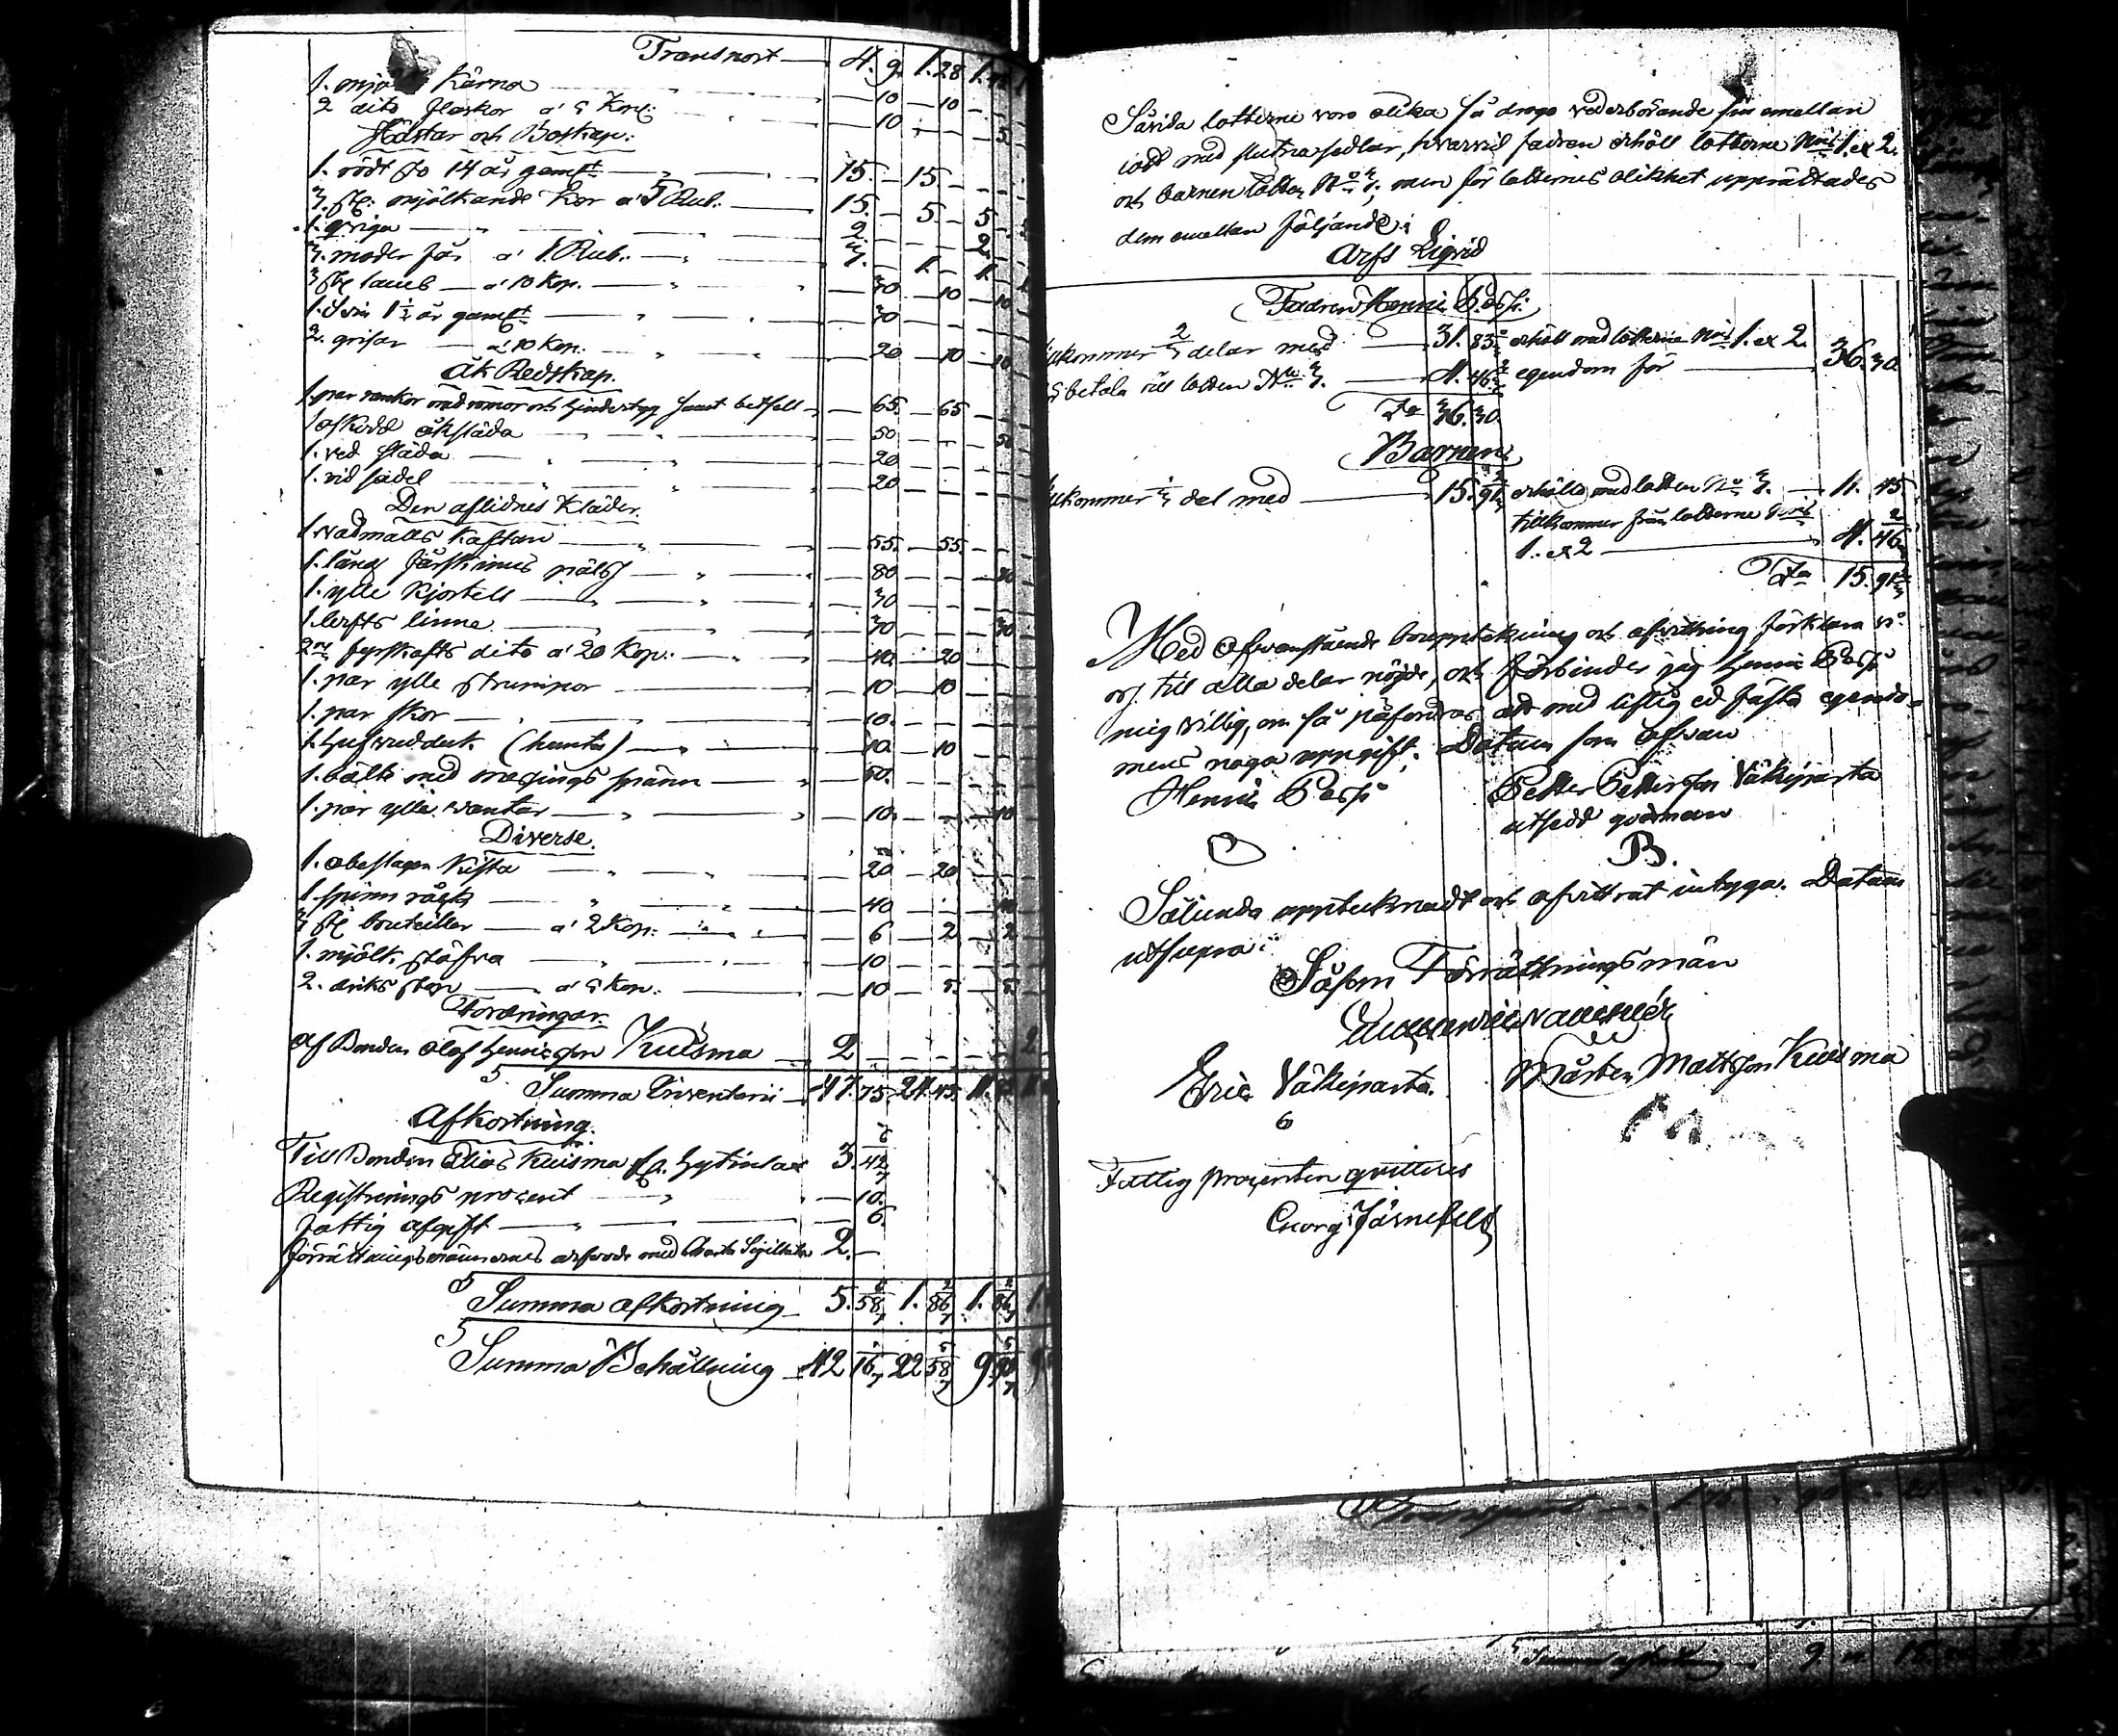 Transport 4. 9. 1. 28 1.
1. mjölk Kärna — 10 — 10
2 dito flaskor a' 5 Kop: — 10 — 5
Hästar och Boskap:
1. rödt sto 14 år gamt — 15. — 15
3. st: mjölkande Kor a' 5 Rub. — 15. — 5 — 5
1. qviga — 2. — 2
3. moder får a' 1 Rub. — 3. — 1. — 1
3 st lamb — a' 10 Kop. — 30 — 10 — 10
1. Svin 1½ år gamt — 30
2. grisar — a' 10 Kop. — 20 — 10 — 10
Åk Redskap.
1. par med och samt — 65 — 65
1 åksläda — 50 — 50
1. ved släda — 20
1. rid sadel — 20
Den aflidnes Kläder.
1 vadmals Kaftan — 55. — 55
1. lång fårskinns päls — 80 — 80
1. ylle Kjortell — 30
1. lerfts linne — 30 — 30
2ne fyrskafts dito a' 20 Kop: — 40 — 20
1. par ylle strumpor — 10 — 10
1. par skor — 10.
1. hufvudduk (hunta) — 10 — 10
1. bälte med mässings spänn — 50.
1. par ylle vantar — 10 — 10
Diverse.
1. obeslagen Kista — 20 — 20
1. spinn råck — 40 — 40
3 st bouteiller — a' 2 Kop: — 6 — 2 — 2
1. mjölk stäfva — 10
2. driks stop — a' 5 Kop: — 10 — 5. — 5
Fordringar.
Af Bonden Olof Henricsson Kuisma — 2 — 2
Summa Inventarii 47. 75 24. 45. 11.
Afkortning.
Till Bonden Elias Kuisma — 3. 42
Registrerings procent — 10.
fattig afgift — 6.
förrättningsmännernes arfvode med Charta Sigillata 2. —
Summa afkortning 5. 58 1. 86 1. 86 1.
Summa Behållning 42 16 22 58 9
Såvida lotterne voro olika så drogo vederbörande sin emellan
lodt med slutna sedlar, hvarvid fadren erhöll lotterne Nris 1. et 2.
och barnen lotten No 3; men för lotternes olikhet upprättades
dem emellan följande:
Arfs Liqvid
Fadren Henric
tillkommer 2/3 delar med — 31. 83 erhöll med lotterne Nris 1. et 2.
betala till lotten No 3. — 4. 46 egendom för — 36. 30.
Sa 36. 30.
Barnen
tillkommer 1/3 del med — 15. 91 erhöllo med lotten No 3. — 11. 45
tillkommer från lotterne Nris
1. et 2 — 4. 46
Sa 15. 91
Med ofvanstående bouppteckning och afvittring förklara vi
oss till alla delar nöjde, och förbinder jag Henric
mig villig, om så påfordras att med liflig ed fästa egendo-
mens noga uppgift. Datum som ofvan
Henric Petter Pettersson Väkiparta
utsedd godman
B.
Sålunda uppteknadt och afvittrat intyga. Datum
utsupra.
Såsom Förrättningsmän
Eric Väkiparta. Mårten Mattsson Kuisma
Fattig procenten qvitteres
Georg Järnefelt